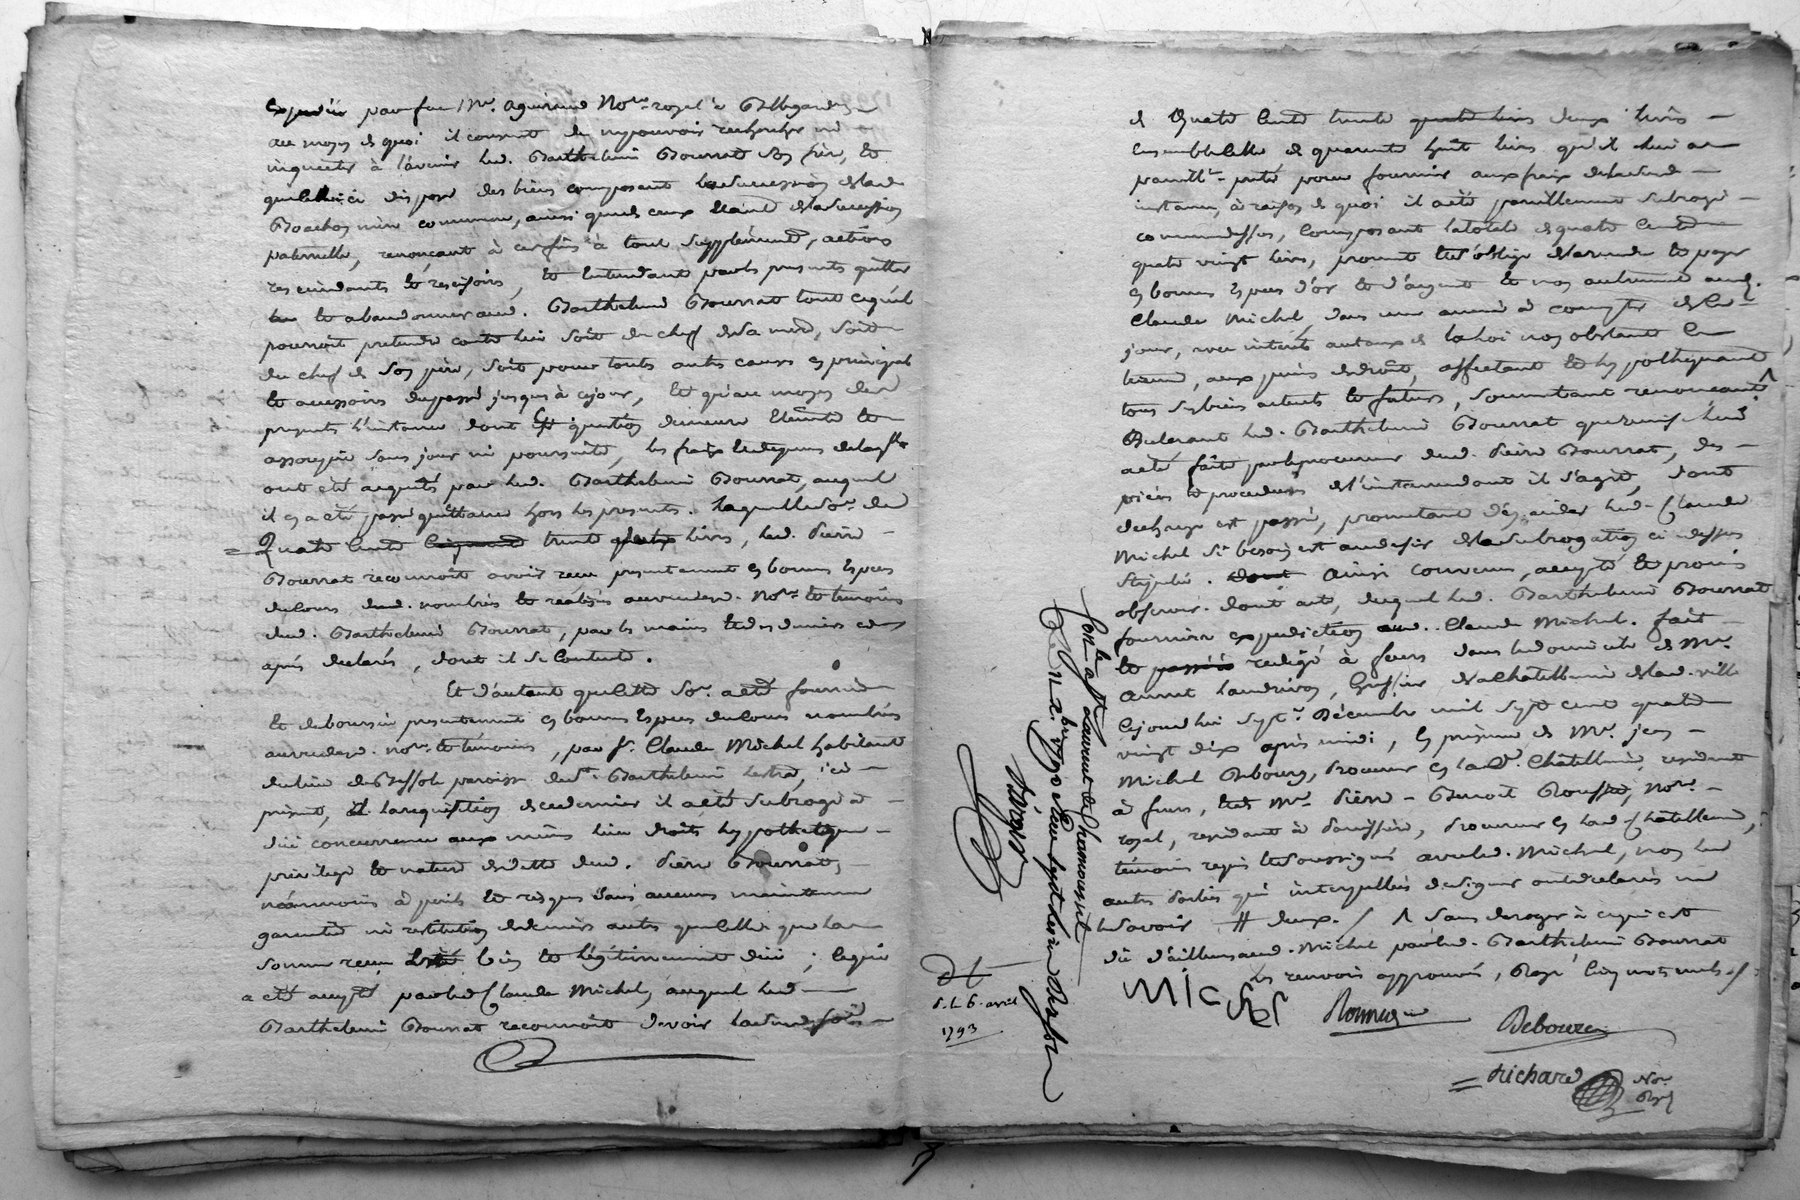 expedié par feu Mre. aguiraud Nore. royal à Bellegarde,
au moyen de quoi il consent de ne pouvoir rechercher ni
inquieter à l'avenir led. Barthelemi Bourrat son frère, et
que celui ci dispose des biens composant la succession de lad.
Bachon mère commune, ainsi que de ceux etant de la succession
paternelle, renonçant à ces fins à tout supplément, actions
rescindants et rescisoirs, et entendant par les presents quitter
et abandonner aud. Barthelemi Bourrat tout ce qu'il
pourroit pretendre contre lui soit du chef de sa mère, soit
du chef de son père, soit pour toutes autres causes en principal
et accessoires du passé jusques à ce jour, et qu'au moyen des
presents l'instance dont est question demeure eteinte et
assoupie sans jour ni poursuite, les fraix et depens de laquelle
ont été acquités par led. Barthelemi Bourrat, auquel
il en a été passé quittance hors les presents. Laquelle so.e de
= Quatre cents cinquante trente quatre livres, led. Pierre
Bourrat reconnoît avoir reçu presentement en bonnes especes
de cours nombrés et realisés au vu desd. nore. et temoins
dud. Barthelemi Bourrat, par les mains et des deniers ci
après declarés, dont il se contente.
Et d'autant que cette so.e a été fournie
et deboursée presentement en bonnes especes de cours nombrés
au vu desd. nore. et témoins, par sr. Claude Michel habitant
du lieu de paroisse de st. Barthelemi Lestra, ici
present, à la requisition de ce dernier il a été subrogé
concurrence aux mêmes lieu droits hypotheque
privilege et nature de dette dud. Pierre Bourrat,
néanmoins à perils et risques sans aucune maintenue
garantie ni restitution de deniers autre que celle que la
somme reçue bien et légitimement due ; ce qui
a été accepté par led. Claude Michel, auquel led.
Barthelemi Bourrat reconnoit devoir lad. somme
de Quatre cents trente quatre livres deux livres
ensemble celle de quarante huit livres qu'il lui a
pareillt. preté pour fournir aux frais de lad.
instance, à raison de quoi il a été pareillement subrogé
comme dessus, composant la totale de quatre cents
quatre vingt livres, promet et s'oblige de la rendre et payer
en bonnes especes d'or et d'argent et non autrement aud.
Claude Michel dans une année à compter de ce
jour, avec interêts au taux de la loi non obstant le
terme, aux peines de droit, affectant et hypothequant
tous ses biens actuels et futurs, soumettant renonçant ^
Declarant led. Barthelemi Bourrat que remise lui
a été faite par le procureur dud. Pierre Bourrat, des
pièces et procedures de l'instance dont il s'agit, dont
decharge est passée, promettant d'en aider led. Claude
Michel si besoin est au desir de la subrogation ci dessus
stipulée. Dont Ainsi convenu, accepté et promis
observer. dont acte, duquel led. Barthelemi Bourrat
fournira expedition aud. Claude Michel. fait
et passé redigé à feurs dans le domicile de Mre.
Annet Landrivon, Greffier de la Châtellenie de lad. ville
Cejourd'hui sept. Décembre mil sept cent quatre
vingt dix après midi, en presence de Mre. jean
Michel Debourg, Procureur en lad. Châtellenie, residant
à feurs, et de Mre. Pierre Benoit Rousset, nore.
royal, residant à Panissière, Procureur en lad. Châtellenie,
témoins requis et soussignés avec led. Michel, non les
autres parties qui interpellées de signer ont declaré ne
le savoir # deux. / ^ sans deroger à ce qui est
dû d'ailleurs aud. Michel par led. Barthelemi Bourrat
les renvois approuvés, Rayé cinq mots nuls. /
Michel
Debourg
= Richard Nore. Royl
son le st Laurent de Chamousset
le 6. avril
1793